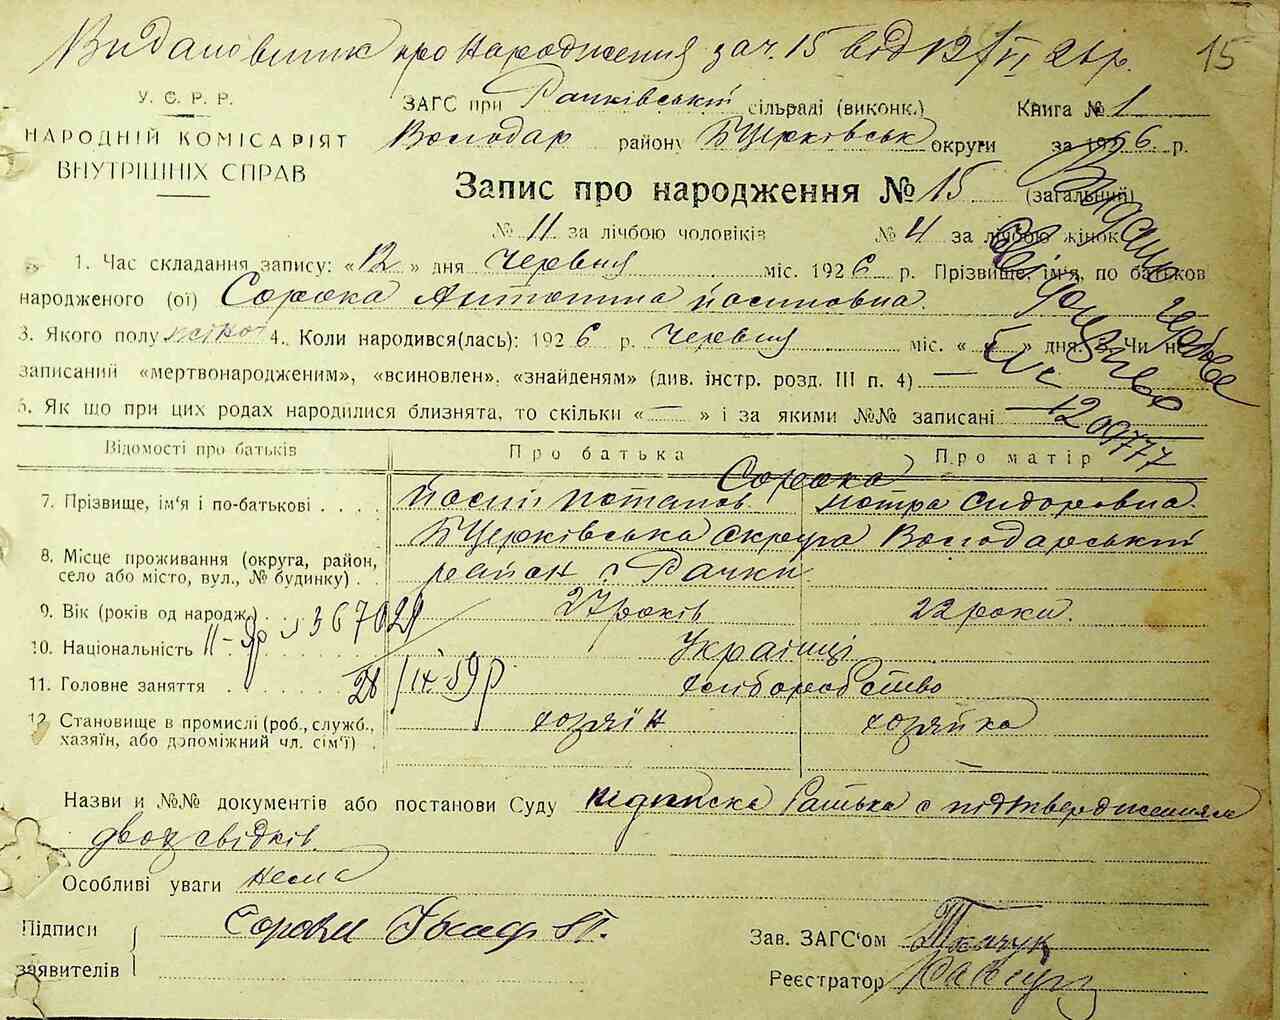 Видано випис про народження за ч. 15 від 12/VI 26 р. 15
У.С.Р.Р.
НАРОДНІЙ КОМІСАРІЯТ
ВНУТРІШНІХ СПРАВ
ЗАГС при Рачківській сільраді (виконк.) Книга № 1
Володар району БЦерківськ округи за 1926 р.
Запис про народження № 15 (загальний)
№ 11 за лічбою чоловіків № 4 за лічбою жінок
1. Час складання запису: « 12 » дня Червня міс. 1926 р. Прізвище, ім'я, по батьков
народженого (ої) Сорока Антонина Йосиповна.
3. Якого полу жіноч 4. Коли народився(лась): 1926 р. Червня міс. « » дня. 5. Чи не
записаний «мертвонародженим», «всиновлен», «знайденям» (див. інстр. розд. III п. 4) —
6. Як що при цих родах народилися близнята, то скільки « — » і за якими №№ записані —
Видано
1209777
Відомості про батьків Про батька Про матір
Сорока
7. Прізвище, ім'я і по-батькові Йосип Потапов. Мотря Сидоровна.
8. Місце проживання (округа, район, село або місто, вул., № будинку) БЦерківська округа Володарський
район с Рачки
9. Вік (років од народж.) 27 років 22 роки.
10. Національність Українці
11. Головне заняття хліборобство
28/IX-59 р
12. Становище в промислі (роб., служб., хазяїн, або допоміжний чл. сім'ї) хозяїн хозяйка
Назви и №№ документів або постанови Суду підписка Батька с підтвердженням
двох свідків.
Особливі уваги нема
Підписи заявителів Сорока
Зав. ЗАГС'ом Ткачук
Реєстратор